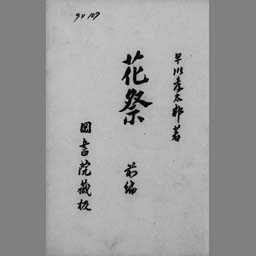 早川孝太郎著
花祭 前編
岡書院蔵板